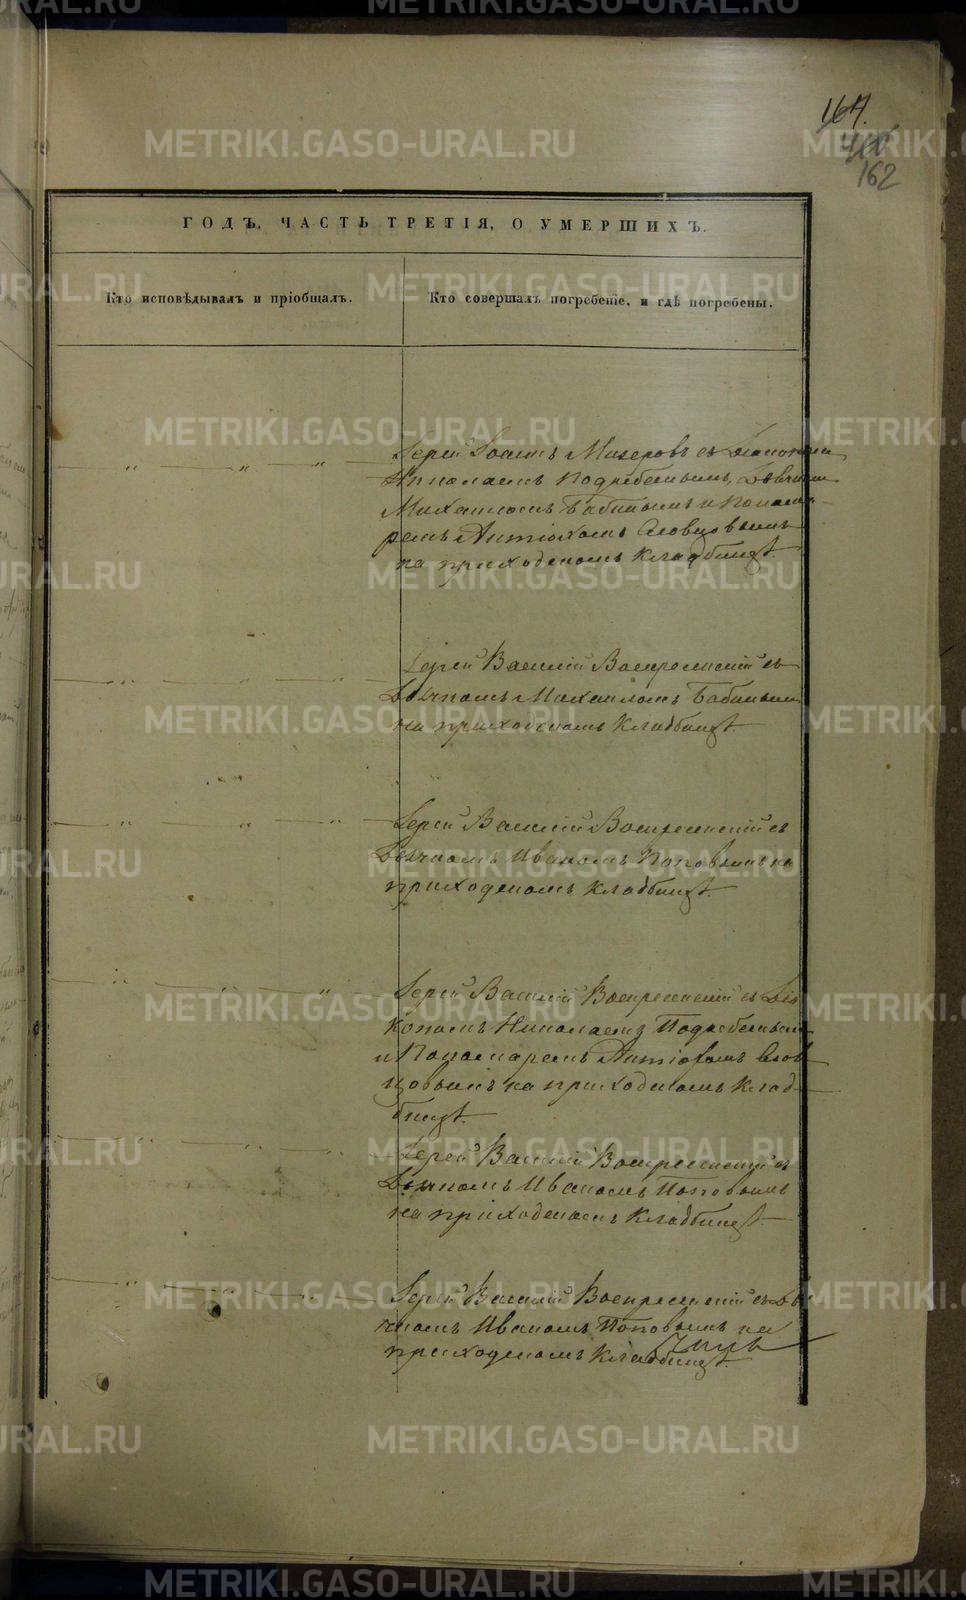 167.
162
ГОДЪ, ЧАСТЬ ТРЕТІЯ, О УМЕРШИХЪ.
Кто исповѣдывалъ и пріобщалъ.
Кто совершалъ погребеніе, и гдѣ погребены.
Іерей Іоаннъ Мизеровъ съ Діакономъ
Николаемъ Подребельнымъ, Дьячкомъ
Михаиломъ Бабинымъ и Понома-
ремъ Антіохомъ Словцовымъ
на приходскомъ кладбищѣ.
Іерей Василій Воскресенскій съ
Дьячкомъ Михаиломъ Бабинымъ
на приходскомъ кладбищѣ.
Іерей Василій Воскресенскій съ
Дьячкомъ Иваномъ Поповымъ на
приходскомъ кладбищѣ.
Іерей Василій Воскресенскій съ Діа
кономъ Николаемъ
и Пономаремъ Антіохомъ Слов
цовымъ на приходскомъ клад-
бищѣ.
Іерей Василій Воскресенскій съ
Дьячкомъ Иваномъ Поповымъ
на приходскомъ кладбищѣ
Іерей Василій Воскресенскій съ Дья
чкомъ Иваномъ Поповымъ на
приходскомъ кладбищѣ.
METRIKI.GASO-URAL.RU